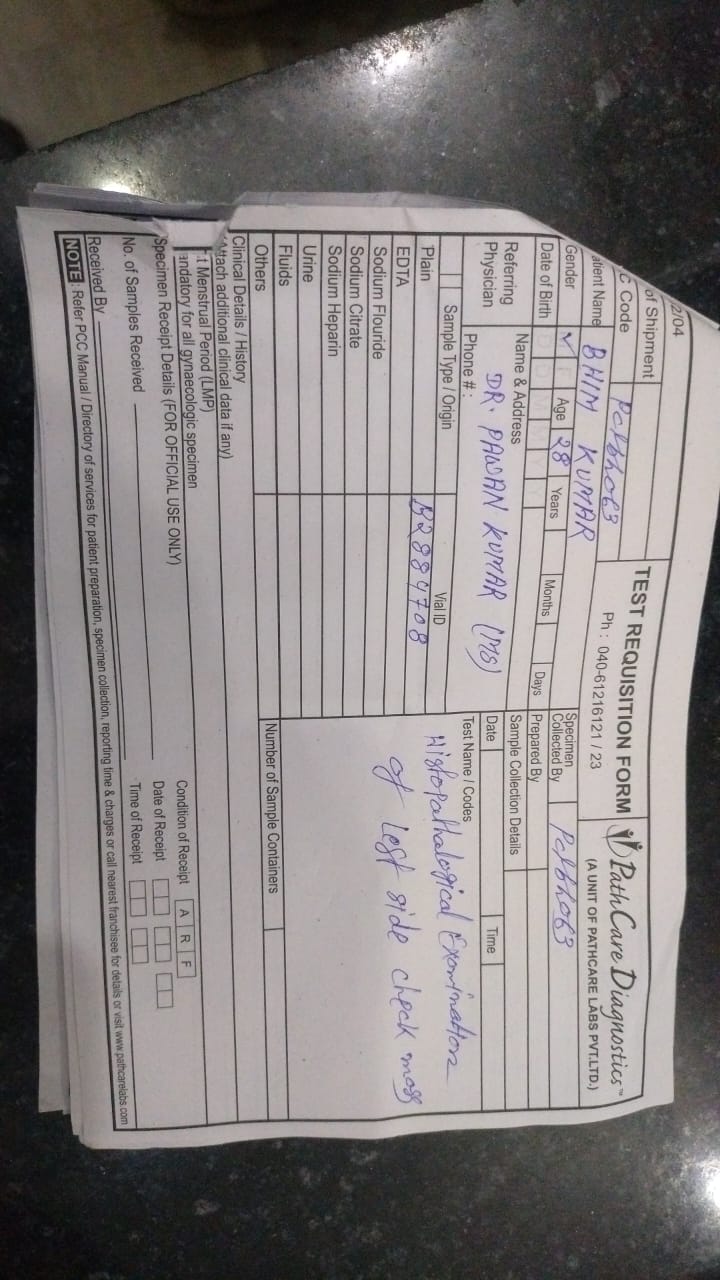 2/04
of Shipment
C Code
TEST REQUISITION FORM
Ph : 040-61216121 / 23
PathCare Diagnostics™
(A UNIT OF PATHCARE LABS PVT.LTD.)
atient Name BHIM KUMAR
Gender ✓ F Age 28 Years Months Days
Date of Birth D D M M Y Y
Specimen Collected By
Prepared By
Referring Physician
Name & Address
DR. PAWAN KUMAR (MS)
Phone # :
Sample Collection Details
Date Time
Sample Type / Origin Vial ID
Test Name / Codes
Plain B2884708
Histopathological Examination
of left side check mass
EDTA
Sodium Flouride
Sodium Citrate
Sodium Heparin
Urine
Fluids
Others
Number of Sample Containers
Clinical Details / History
Attach additional clinical data if any)
t Menstrual Period (LMP)
andatory for all gynaecologic specimen
Specimen Receipt Details (FOR OFFICIAL USE ONLY)
Condition of Receipt A R F
No. of Samples Received
Date of Receipt
Time of Receipt
Received By
NOTE : Refer PCC Manual / Directory of services for patient preparation, specimen collection, reporting time & charges or call nearest franchisee for details or visit www.pathcarelabs.com